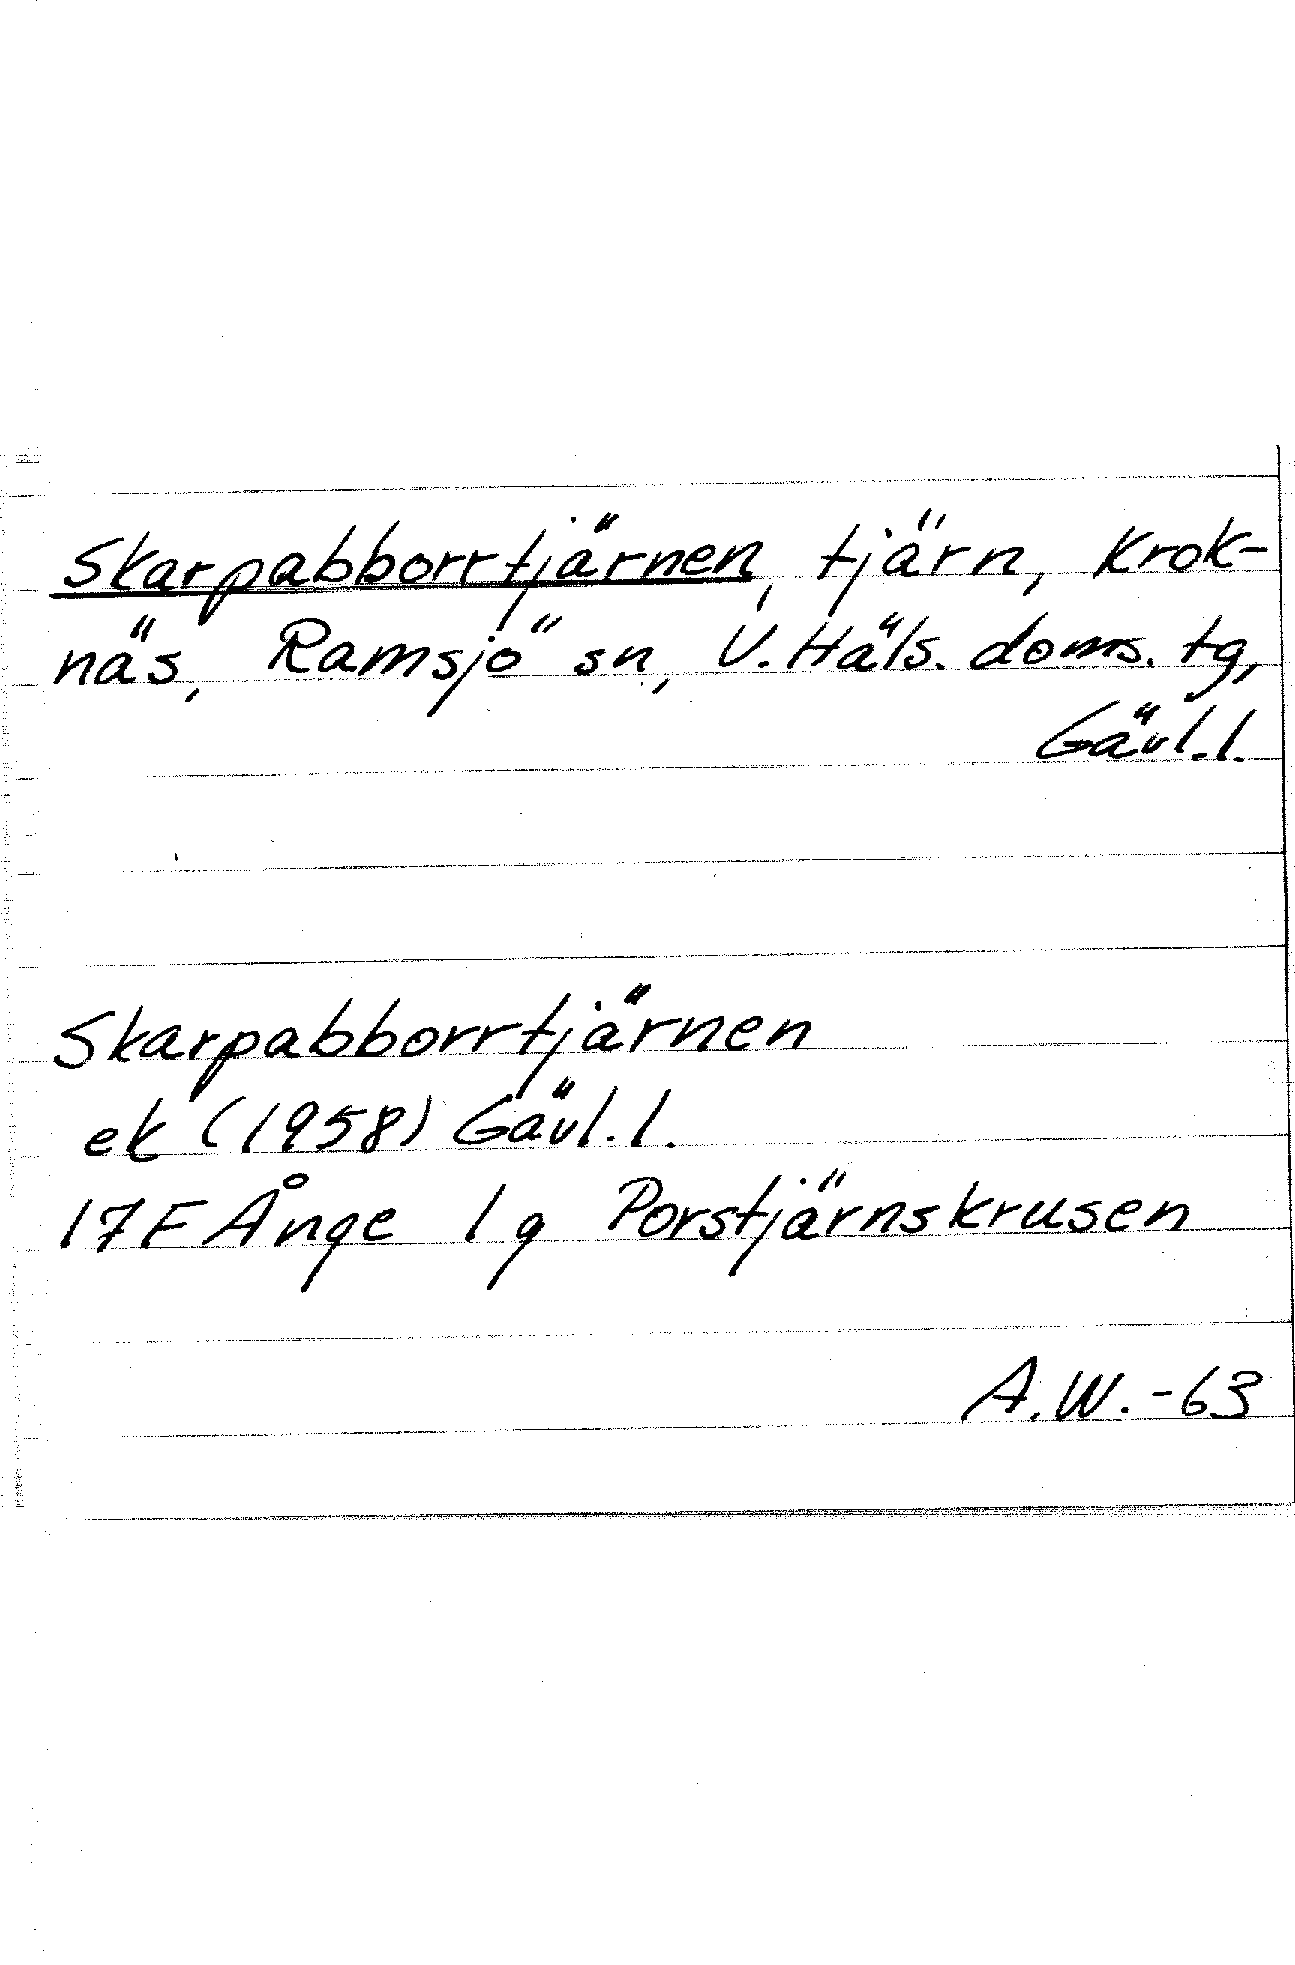 Skarpabborrtjärnen, tjärn, Krok-
näs, Ramsjö sn, V. Häls. doms. tg,
Gävl. l.
Skarpabborrtjärnen
ek (1958) Gävl. l.
17F Ånge 1g Porstjärnskrusen
A.W. -63